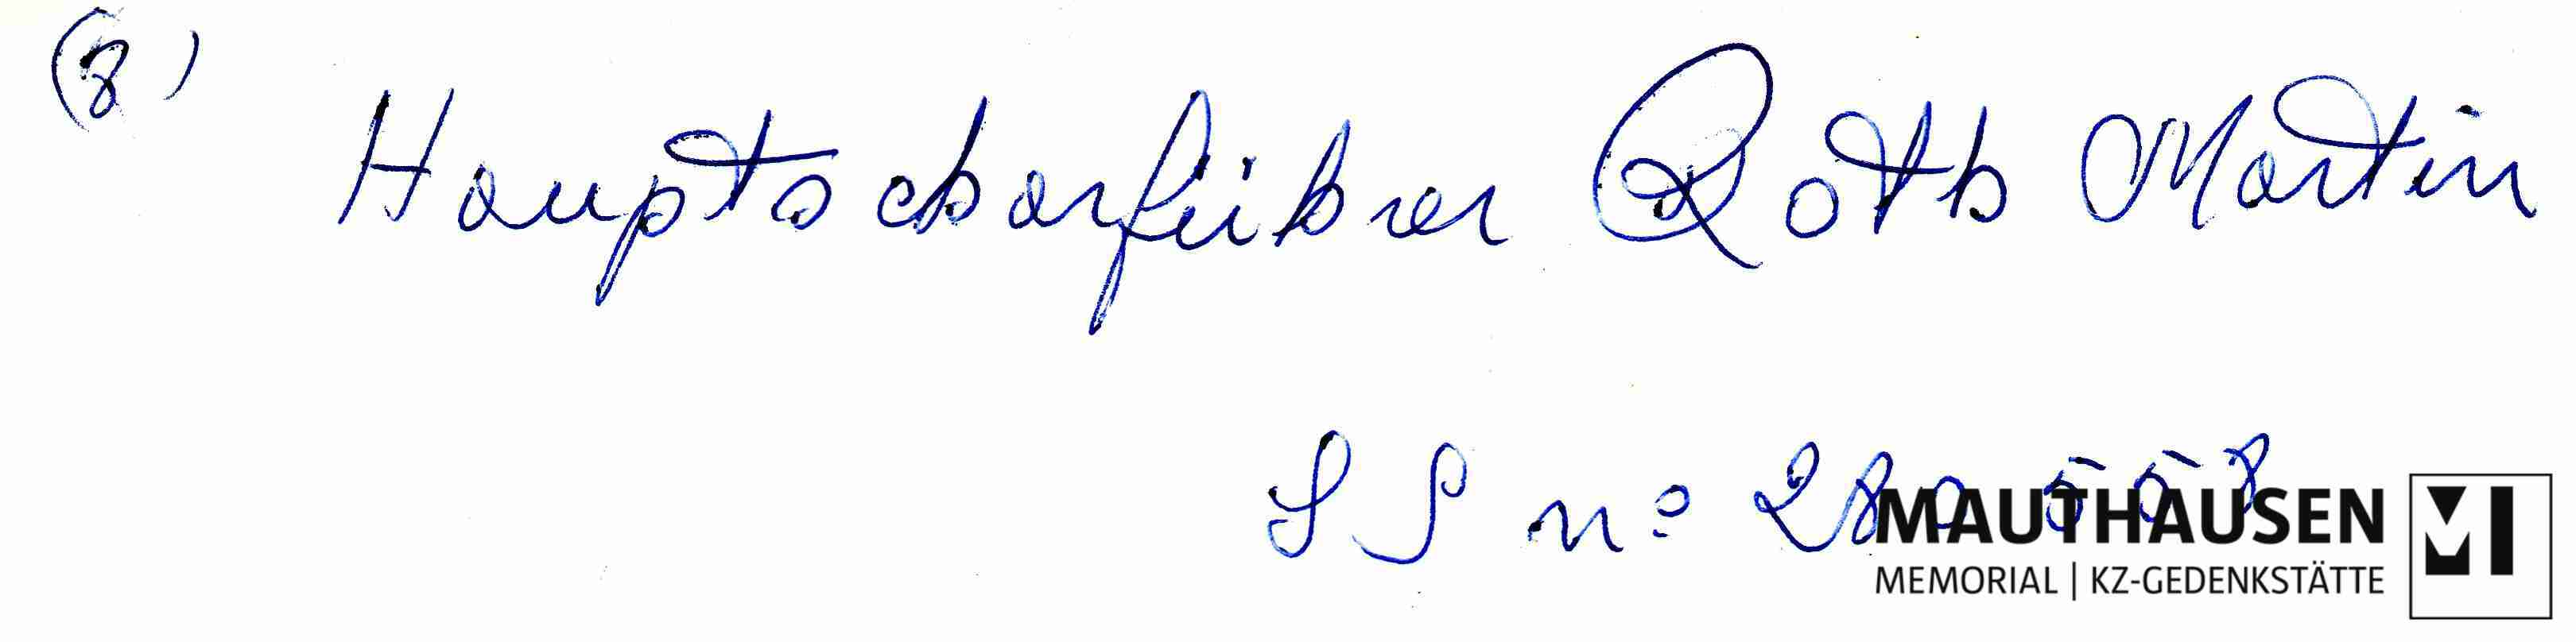 (8)
Hauptscharführer Roth Martin
SS nº 280 558
MAUTHAUSEN
MEMORIAL | KZ-GEDENKSTÄTTE